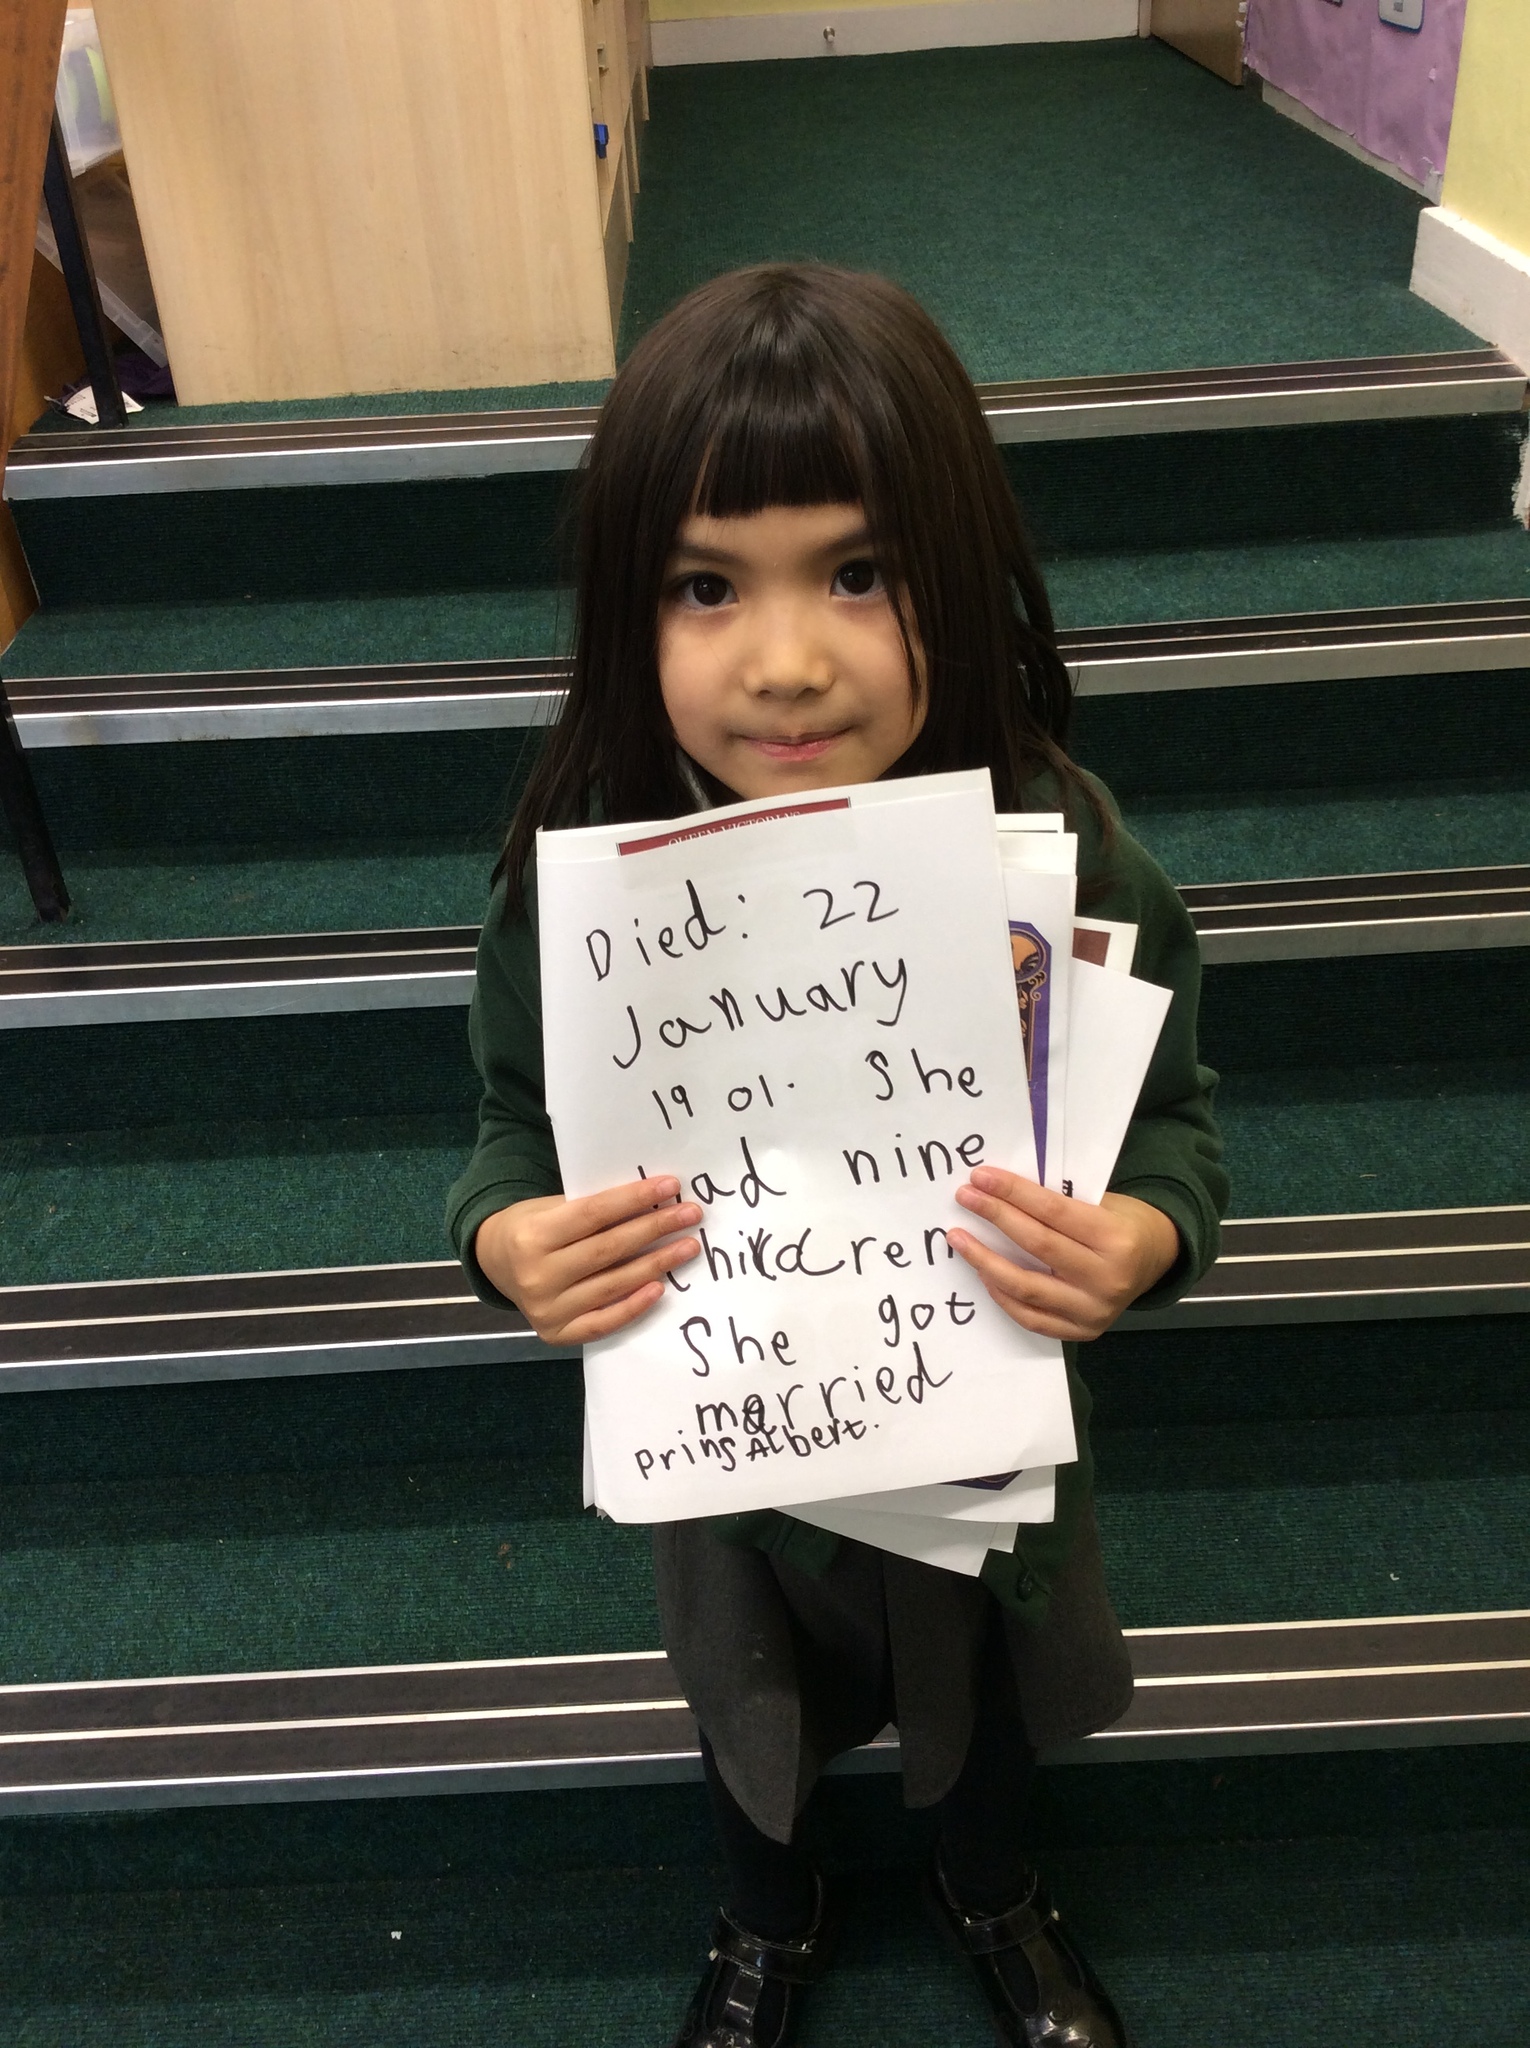 QUEEN VICTORIA'S
Died: 22
January
1901. She
had nine
children
She got
married
prins Albert.